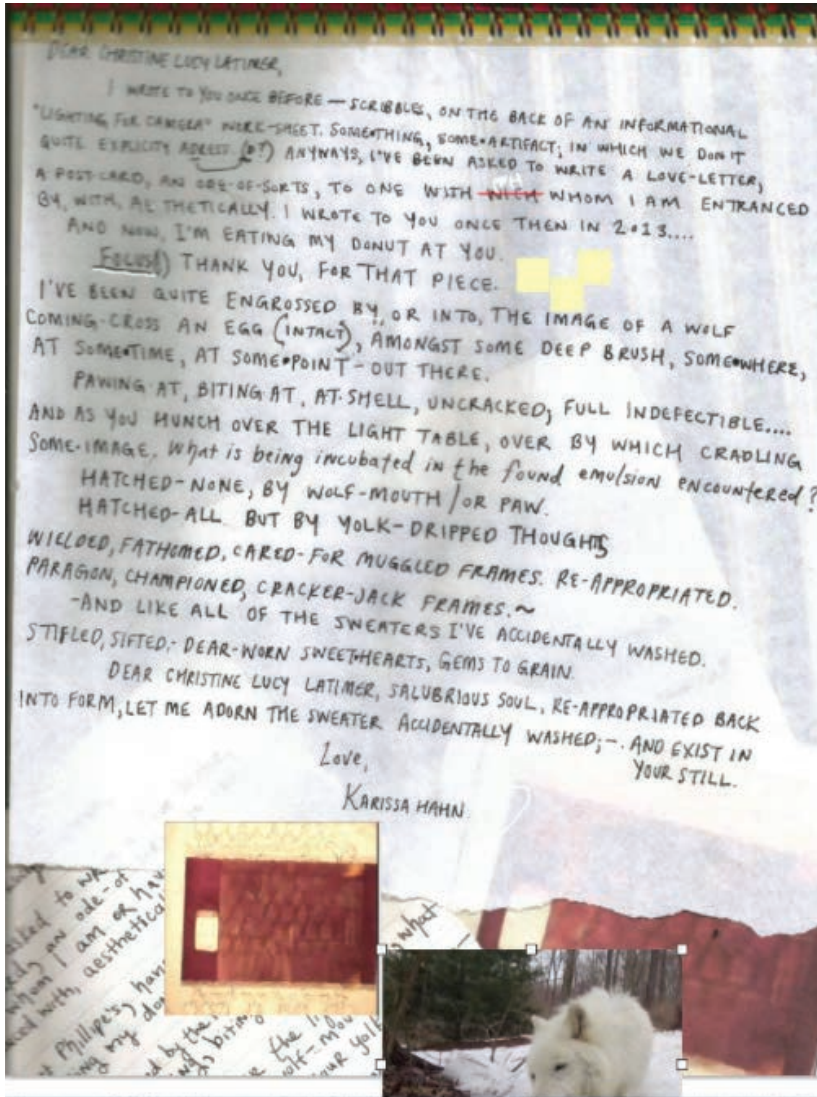 DEAR CHRISTINE LUCY LATIMER,
I WROTE TO YOU ONCE BEFORE — SCRIBBLES, ON THE BACK OF AN INFORMATIONAL
"LIGHTING FOR CAMERA" WORK-SHEET. SOME•THING, SOME•ARTIFACT; IN WHICH WE DON'T
QUITE EXPLICITY ADRESS. (D?) ANYWAYS, I'VE BEEN ASKED TO WRITE A LOVE-LETTER,
A POST-CARD, AN ODE-OF-SORTS, TO ONE WITH WITH WHOM I AM ENTRANCED
BY, WITH, AETHETICALLY. I WROTE TO YOU ONCE THEN IN 2013....
AND NOW, I'M EATING MY DONUT AT YOU.
FOCUS!) THANK YOU, FOR THAT PIECE.
I'VE BEEN QUITE ENGROSSED BY, OR INTO, THE IMAGE OF A WOLF
COMING-CROSS AN EGG (INTACT), AMONGST SOME DEEP BRUSH, SOME•WHERE,
AT SOME•TIME, AT SOME•POINT - OUT THERE.
PAWING•AT, BITING•AT, AT•SHELL, UNCRACKED; FULL INDEFECTIBLE....
AND AS YOU HUNCH OVER THE LIGHT TABLE, OVER BY WHICH CRADLING
SOME•IMAGE. What is being incubated in the found emulsion encountered?
HATCHED-NONE, BY WOLF-MOUTH / OR PAW.
HATCHED-ALL BUT BY YOLK-DRIPPED THOUGHTS
WIELDED, FATHOMED, CARED-FOR MUGGLED FRAMES. RE-APPROPRIATED.
PARAGON, CHAMPIONED, CRACKER-JACK FRAMES.~
-AND LIKE ALL OF THE SWEATERS I'VE ACCIDENTALLY WASHED.
STIFLED, SIFTED,- DEAR-WORN SWEETHEARTS, GEMS TO GRAIN.
DEAR CHRISTINE LUCY LATIMER, SALUBRIOUS SOUL, RE-APPROPRIATED BACK
INTO FORM, LET ME ADORN THE SWEATER ACCIDENTALLY WASHED; -. AND EXIST IN
YOUR STILL.
Love,
KARISSA HAHN
asked to
an ode-of
whom I am or hav
with, aesthetical
Phillipe's,
my do
by the
biting
the li
wolf-mou
your yolk
what